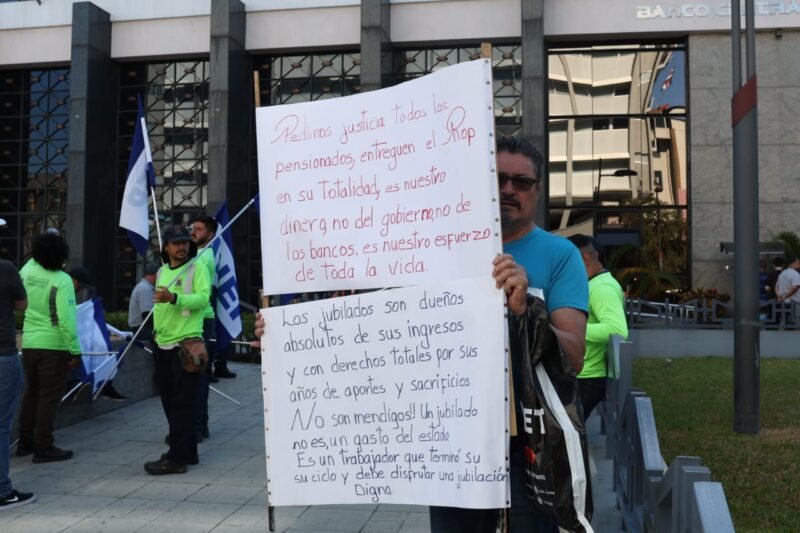 BANCO CENTRA
Pedimos justicia todos los
pensionados, entreguen el Rop
en su totalidad, es nuestro
dinero, no del gobierno, no de
los bancos, es nuestro esfuerzo
de toda la vida.
Los jubilados son dueños
absolutos de sus ingresos
y con derechos totales por sus
años de aportes y sacrificios
No son mendigos!! Un jubilado
no es, un gasto del estado
Es un trabajador que terminó su
su ciclo y debe disfrutar una jubilación
Digna
ET